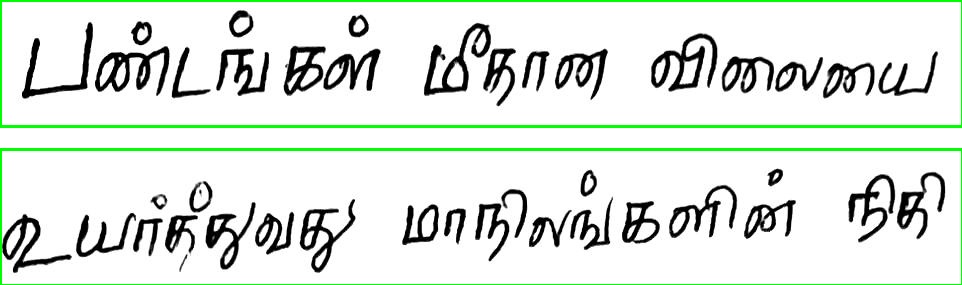 பண்டங்கள் மீதான விலையை
உயர்த்துவது மாநிலங்களின் நிதி